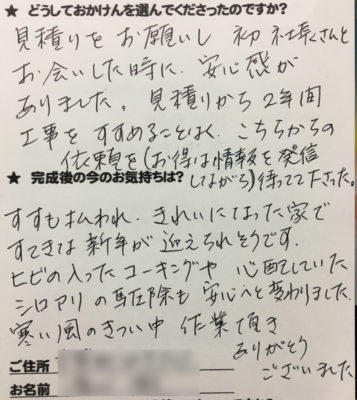 ★ どうしておかけんを選んでくださったのですか？
見積りをお願いし 初 社長さんと
お会いした時に、安心感が
ありました。見積りから2年間
工事をすすめることなく、こちらからの
依頼を(お得な情報を発信
しながら)待ってて下さった。
★ 完成後の今のお気持ちは？
すすも払われ、きれいになった家で
すてきな新年が迎えられそうです。
ヒビの入ったコーキングや 心配していた
シロアリの駆除も 安心へと変わりました。
寒い風のきつい中 作業頂き
ありがとう
ございました
ご住所
お名前